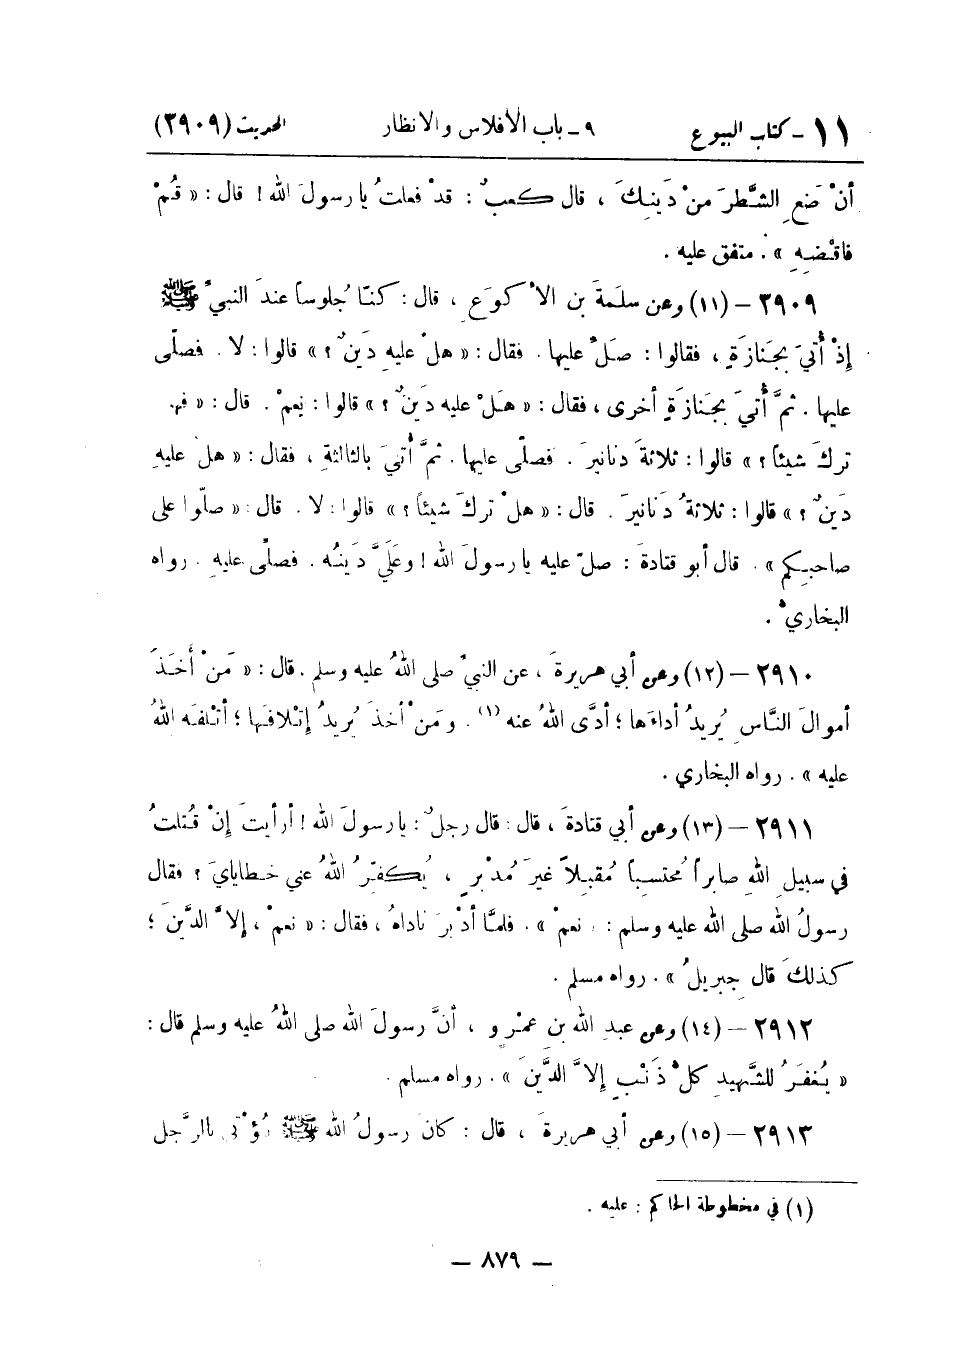 ١١ - كتاب البيوع ٩ - باب الأفلاس والانظار الحديث (٢٩٠٩)
أنْ ضَعِ الشَّطرَ منْ دَينِكَ ، قال كعبٌ : قدْ فعلتُ يا رسولَ الله ! قال : « قُمْ
فاقْضِهِ » . متفق عليه .
٢٩٠٩ - (١١) وعن سلَمةَ بن الأكوَعِ ، قال : كنَّا جُلوساً عندَ النبيِّ ﷺ
إذْ أُتيَ بجَنازَةٍ ، فقالوا : صَلِّ عليها . فقال : « هلْ عليهِ دَينٌ ؟ » قالوا : لا . فصلَّى
عليها . ثمَّ أُتيَ بجَنازَةٍ أخرى ، فقال : « هَلْ عليه دَينٌ ؟ » قالوا : نعمْ . قال : « فهل
تركَ شيئاً ؟ » قالوا : ثلاثةَ دنانيرَ . فصلَّى عليها . ثمَّ أُتيَ بالثالثةِ ، فقال : « هلْ عليهِ
دَينٌ ؟ » قالوا : ثلاثةُ دَنانيرَ . قال : « هلْ تركَ شيئاً ؟ » قالوا : لا . قال : « صلّوا على
صاحبِكم » . قال أبو قتادةَ : صلّ عليه يا رسولَ الله ! وعَلَيَّ دَينُه . فصلَّى عليهِ . رواه
البخاريُّ .
٢٩١٠ - (١٢) وعن أبي هريرةَ ، عن النبيِّ صلى اللهُ عليه وسلم . قال : « مَنْ أخَذَ
أموالَ النَّاسِ يُريدُ أداءَها ؛ أدَّى اللهُ عنه (١) . ومَنْ أخذَ يُريدُ إتْلافَها ؛ أتْلفَه اللهُ
عليه » . رواه البخاري .
٢٩١١ - (١٣) وعن أبي قتادةَ ، قال : قال رجلٌ : يا رسولَ الله ! أرأيتَ إنْ قُتلتُ
في سبيلِ اللهِ صابراً مُحتسِباً مُقبلاً غيرَ مُدْبرٍ ، يُكفِّرُ اللهُ عني خطايايَ ؟ فقال
رسولُ الله صلى الله عليه وسلم : « نعمْ » . فلمَّا أدْبرَ ناداهُ ، فقال : « نعمْ ، إلاَّ الدَّينَ ؛
كذلكَ قال جبريلُ » . رواه مسلم .
٢٩١٢ - (١٤) وعن عبدِ الله بنِ عمْرٍو ، أنَّ رسولَ الله صلى اللهُ عليه وسلم قال :
« يُغفَرُ للشَّهيدِ كلُّ ذَنْبٍ إلاَّ الدَّينَ » . رواه مسلم .
٢٩١٣ - (١٥) وعن أبي هريرةَ ، قال : كانَ رسولُ الله ﷺ يُؤْتى بالرَّجل
(١) في مخطوطة الحاكم : عليه .
— ٨٧٩ —